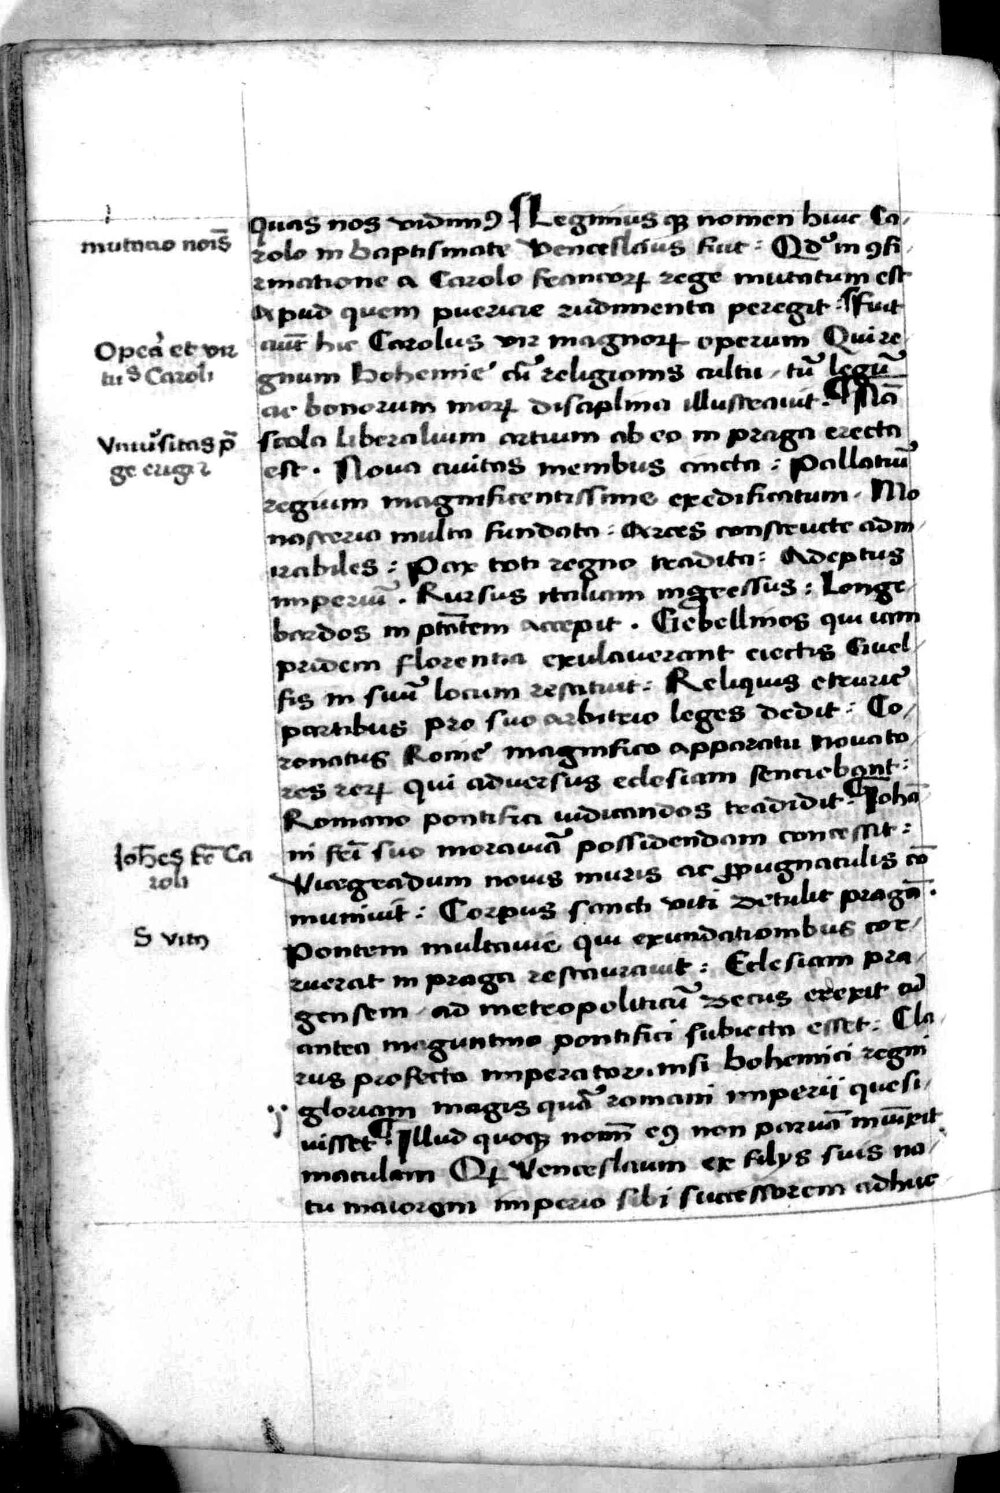 mutacio nois̄
Opea᷑ et vir
tus Caroli
Vniu᷑sitas p̄
ge erigit᷑
Joh̄es fr̄ Ca
roli
S viti
Quas nos vidimꝰ ¶ Legimus qꝫ nomen huic Ca-
rolo in baptismate Venceslaus fuit : Qd᷑ in ꝯfi-
rmatione a Carolo francorꝝ rege mutatum est
Apud quem puericie rudimenta peregit : ¶ Fuit
aut̄ hic Carolus vir magnorꝝ operum Qui re-
gnum Bohemie cū religionis cultu, tū legū
ac bonorum morꝝ disciplina illustrauit. ¶ Nā
scola liberalium artium ab eo in praga erecta
est . Noua ciuitas menibus cincta : Pallatiū
regium magnificentissime exedificatum . Mo
nasteria multa fundata : Arces constructe adm-
irabiles : Pax toti regno tradita : Adeptus
imperiū . Rursus italiam ingressus : Longe-
bardos in ptātem accepit . Gebellinos qui iam
pridem florentia exulauerant eiectis Guel-
fis in suū locum restituit : Reliquis etrurie
partibus pro suo arbitrio leges dedit : Co-
ronatus Rome magnifico apparatu nouato-
res rerꝝ qui aduersus eclesiam senciebant :
Romano pontifici iudicandos tradidit : ¶ Johā-
ni fr̄i suo morauiā possidendam concessit :
Vicegradum nouis muris ac ꝓpugnaculis cō
muniuit : Corpus sancti viti detulit pragā .
Pontem multauie qui exundationibus cor-
ruerat in praga restaurauit : Eclesiam pra-
gensem ad metropoliticū decus erexit cū
antea maguntino pontifici subiecta esset : Cla-
rus profecto imperator nisi bohemici regni
gloriam magis quā romani imperii quesi-
uisset ¶ Illud quoqꝫ nomī eꝰ non paruā inuixit
maculam Qꝫ Venceslaum ex filijs suis na-
tu maiorem imperio sibi successorem adhuc